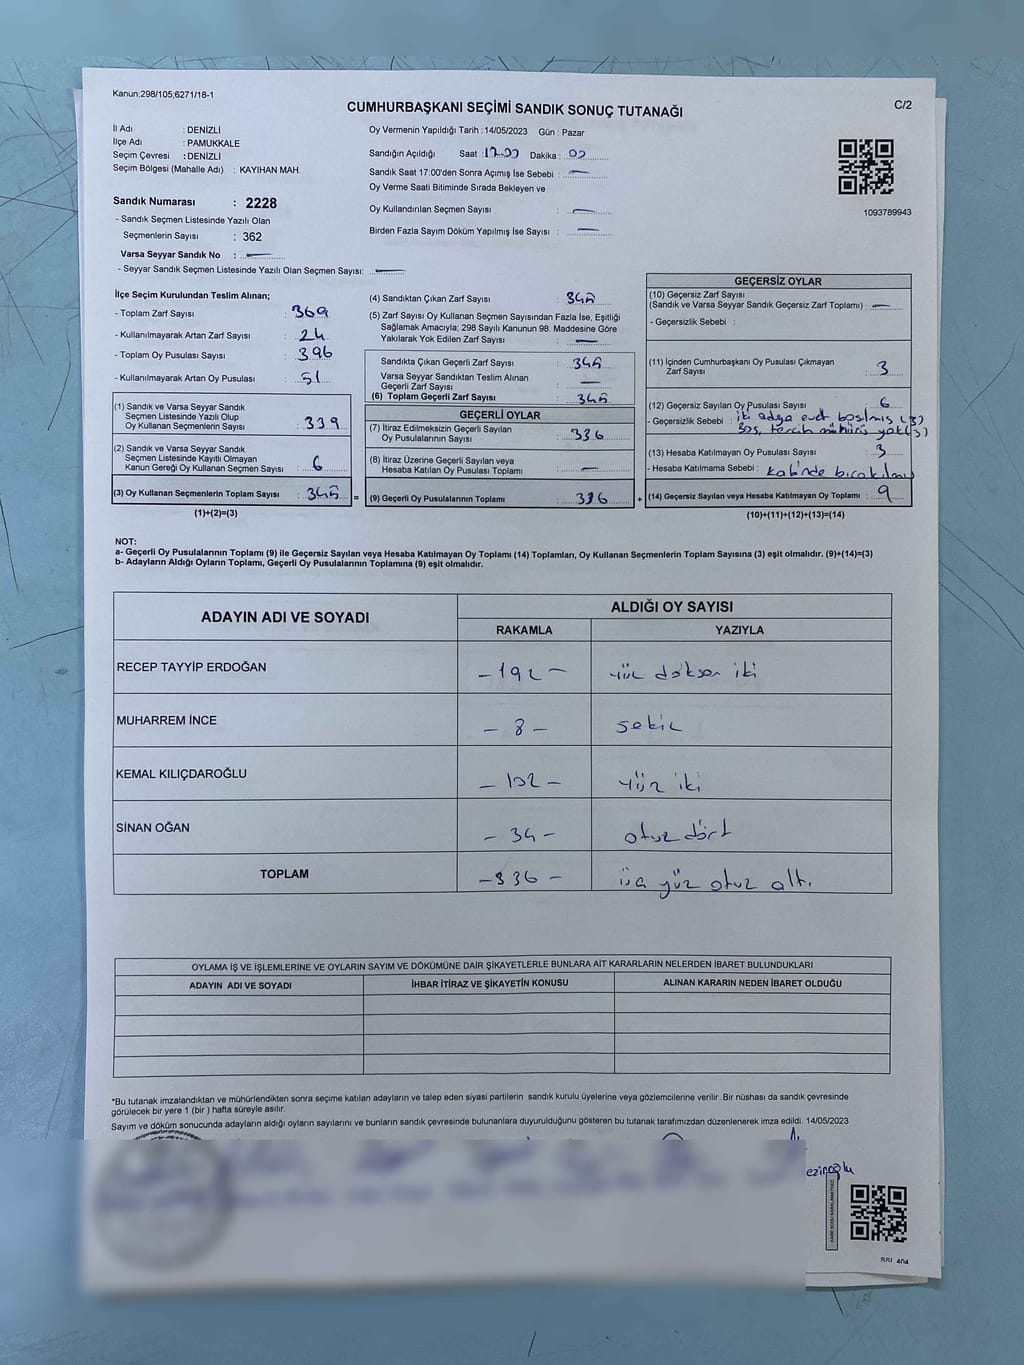 Kanun;298/105;6271/18-1
CUMHURBAŞKANI SEÇİMİ SANDIK SONUÇ TUTANAĞI
C/2
İl Adı : DENİZLİ
İlçe Adı : PAMUKKALE
Seçim Çevresi : DENİZLİ
Seçim Bölgesi (Mahalle Adı) : KAYIHAN MAH.
Sandık Numarası : 2228
- Sandık Seçmen Listesinde Yazılı Olan
Seçmenlerin Sayısı : 362
Varsa Seyyar Sandık No :
- Seyyar Sandık Seçmen Listesinde Yazılı Olan Seçmen Sayısı:
Oy Vermenin Yapıldığı Tarih : 14/05/2023 Gün : Pazar
Sandığın Açıldığı Saat 17.00 Dakika : 00
Sandık Saat 17:00'den Sonra Açımış İse Sebebi :
Oy Verme Saati Bitiminde Sırada Bekleyen ve
Oy Kullandırılan Seçmen Sayısı :
Birden Fazla Sayım Döküm Yapılmış İse Sayısı :
1093789943
İlçe Seçim Kurulundan Teslim Alınan;
- Toplam Zarf Sayısı : 369
- Kullanılmayarak Artan Zarf Sayısı : 24
- Toplam Oy Pusulası Sayısı : 396
- Kullanılmayarak Artan Oy Pusulası : 51
(1) Sandık ve Varsa Seyyar Sandık
Seçmen Listesinde Yazılı Olup
Oy Kullanan Seçmenlerin Sayısı : 339
(2) Sandık ve Varsa Seyyar Sandık
Seçmen Listesinde Kayıtlı Olmayan
Kanun Gereği Oy Kullanan Seçmen Sayısı : 6
(3) Oy Kullanan Seçmenlerin Toplam Sayısı : 345 =
(1)+(2)=(3)
(4) Sandıktan Çıkan Zarf Sayısı : 345
(5) Zarf Sayısı Oy Kullanan Seçmen Sayısından Fazla İse, Eşitliği
Sağlamak Amacıyla; 298 Sayılı Kanunun 98. Maddesine Göre
Yakılarak Yok Edilen Zarf Sayısı :
Sandıkta Çıkan Geçerli Zarf Sayısı : 345
Varsa Seyyar Sandıktan Teslim Alınan
Geçerli Zarf Sayısı :
(6) Toplam Geçerli Zarf Sayısı : 345
GEÇERLİ OYLAR
(7) İtiraz Edilmeksizin Geçerli Sayılan
Oy Pusulalarının Sayısı : 336
(8) İtiraz Üzerine Geçerli Sayılan veya
Hesaba Katılan Oy Pusulası Toplamı :
(9) Geçerli Oy Pusulalarının Toplamı : 336 +
GEÇERSİZ OYLAR
(10) Geçersiz Zarf Sayısı
(Sandık ve Varsa Seyyar Sandık Geçersiz Zarf Toplamı) :
- Geçersizlik Sebebi :
(11) İçinden Cumhurbaşkanı Oy Pusulası Çıkmayan
Zarf Sayısı : 3
(12) Geçersiz Sayılan Oy Pusulası Sayısı : 6
- Geçersizlik Sebebi : iki adaya evet basılmış (3)
Boş, tercih mühürü yok(3)
(13) Hesaba Katılmayan Oy Pusulası Sayısı : 3
- Hesaba Katılmama Sebebi : kabinde bırakılmış
(14) Geçersiz Sayılan veya Hesaba Katılmayan Oy Toplamı : 9
(10)+(11)+(12)+(13)=(14)
NOT:
a- Geçerli Oy Pusulalarının Toplamı (9) ile Geçersiz Sayılan veya Hesaba Katılmayan Oy Toplamı (14) Toplamları, Oy Kullanan Seçmenlerin Toplam Sayısına (3) eşit olmalıdır. (9)+(14)=(3)
b- Adayların Aldığı Oyların Toplamı, Geçerli Oy Pusulalarının Toplamına (9) eşit olmalıdır.
ADAYIN ADI VE SOYADI
ALDIĞI OY SAYISI
RAKAMLA YAZIYLA
RECEP TAYYİP ERDOĞAN -192- yüz doksan iki
MUHARREM İNCE -8- sekiz
KEMAL KILIÇDAROĞLU -102- yüz iki
SİNAN OĞAN -34- otuz dört
TOPLAM -336- üç yüz otuz altı
OYLAMA İŞ VE İŞLEMLERİNE VE OYLARIN SAYIM VE DÖKÜMÜNE DAİR ŞİKAYETLERLE BUNLARA AİT KARARLARIN NELERDEN İBARET BULUNDUKLARI
ADAYIN ADI VE SOYADI İHBAR İTİRAZ VE ŞİKAYETİN KONUSU ALINAN KARARIN NEDEN İBARET OLDUĞU
*Bu tutanak imzalandıktan ve mühürlendikten sonra seçime katılan adayların ve talep eden siyasi partilerin sandık kurulu üyelerine veya gözlemcilerine verilir .Bir nüshası da sandık çevresinde
görülecek bir yere 1 (bir ) hafta süreyle asılır.
Sayım ve döküm sonucunda adayların aldığı oyların sayılarını ve bunların sandık çevresinde bulunanlara duyurulduğunu gösteren bu tutanak tarafımızdan düzenlenerek imza edildi. 14/05/2023
eziroğlu